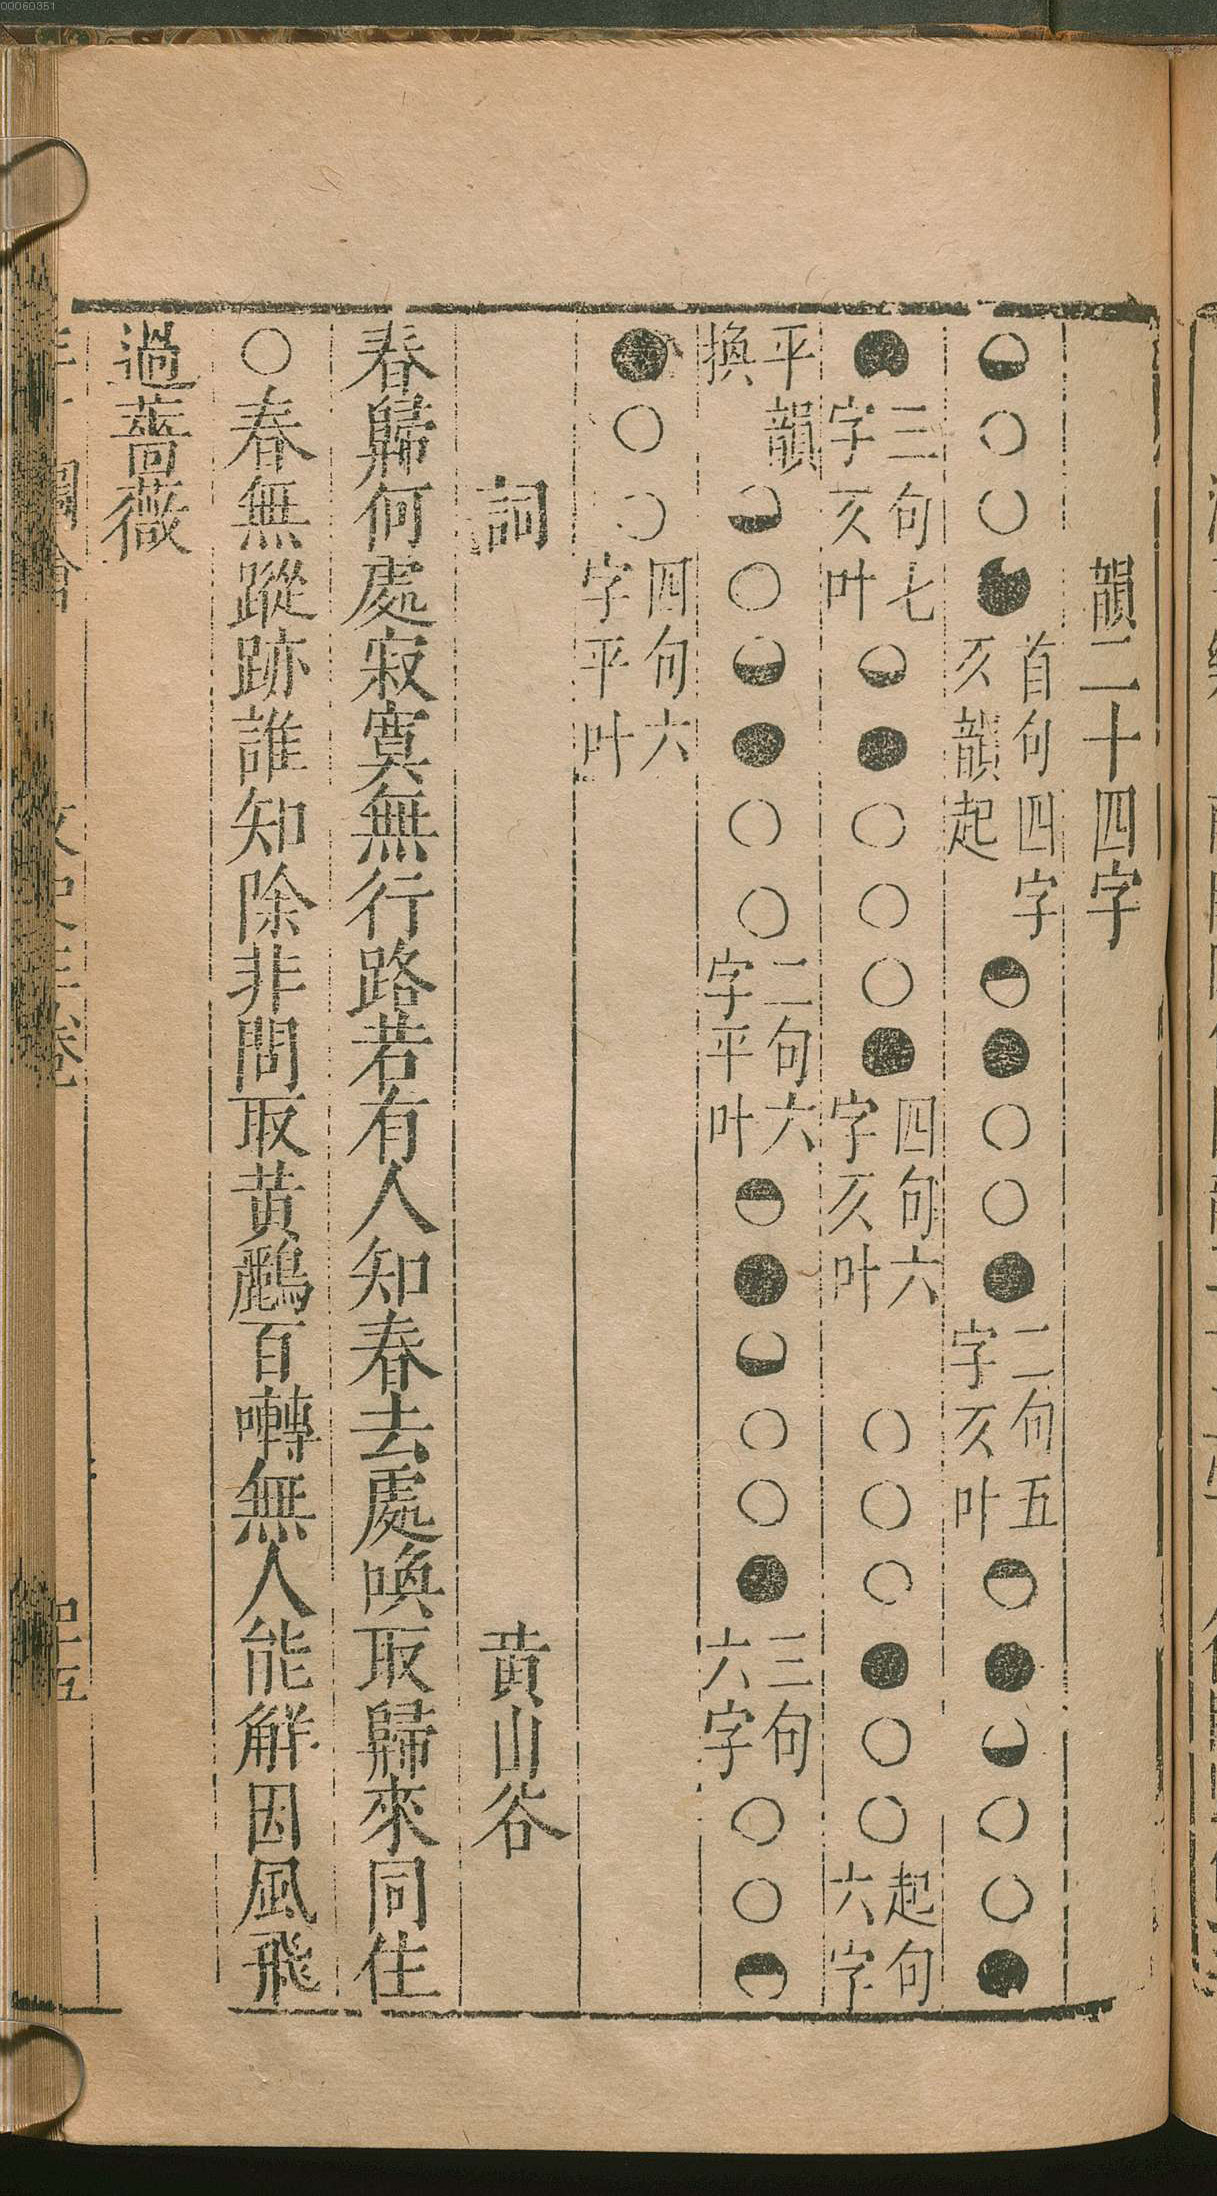 韻二十四字
◒○○●首句四字仄韻起◓●○○●二句五字仄叶◓●◒○○●
●三句七字仄叶◒●○○○●四句六字仄叶 ○○○●○○起句六字
平韻換◒○◒●○○二句六字平叶◓●◒○○●三句六字○○◓
●○○四句六字平叶
詞 黄山谷
春歸何處寂寞無行路若有人知春去處喚取歸來同住
○春無蹤跡誰知除非問取黄鸝百囀無人能解因風飛
過薔薇
00060351